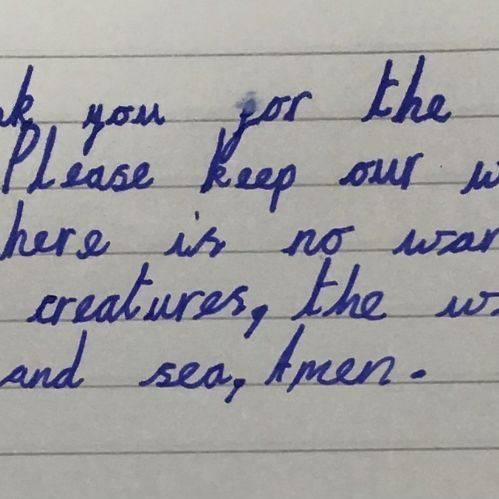 you for the
Please keep our
here is no war
creatures, the
and sea, Amen.